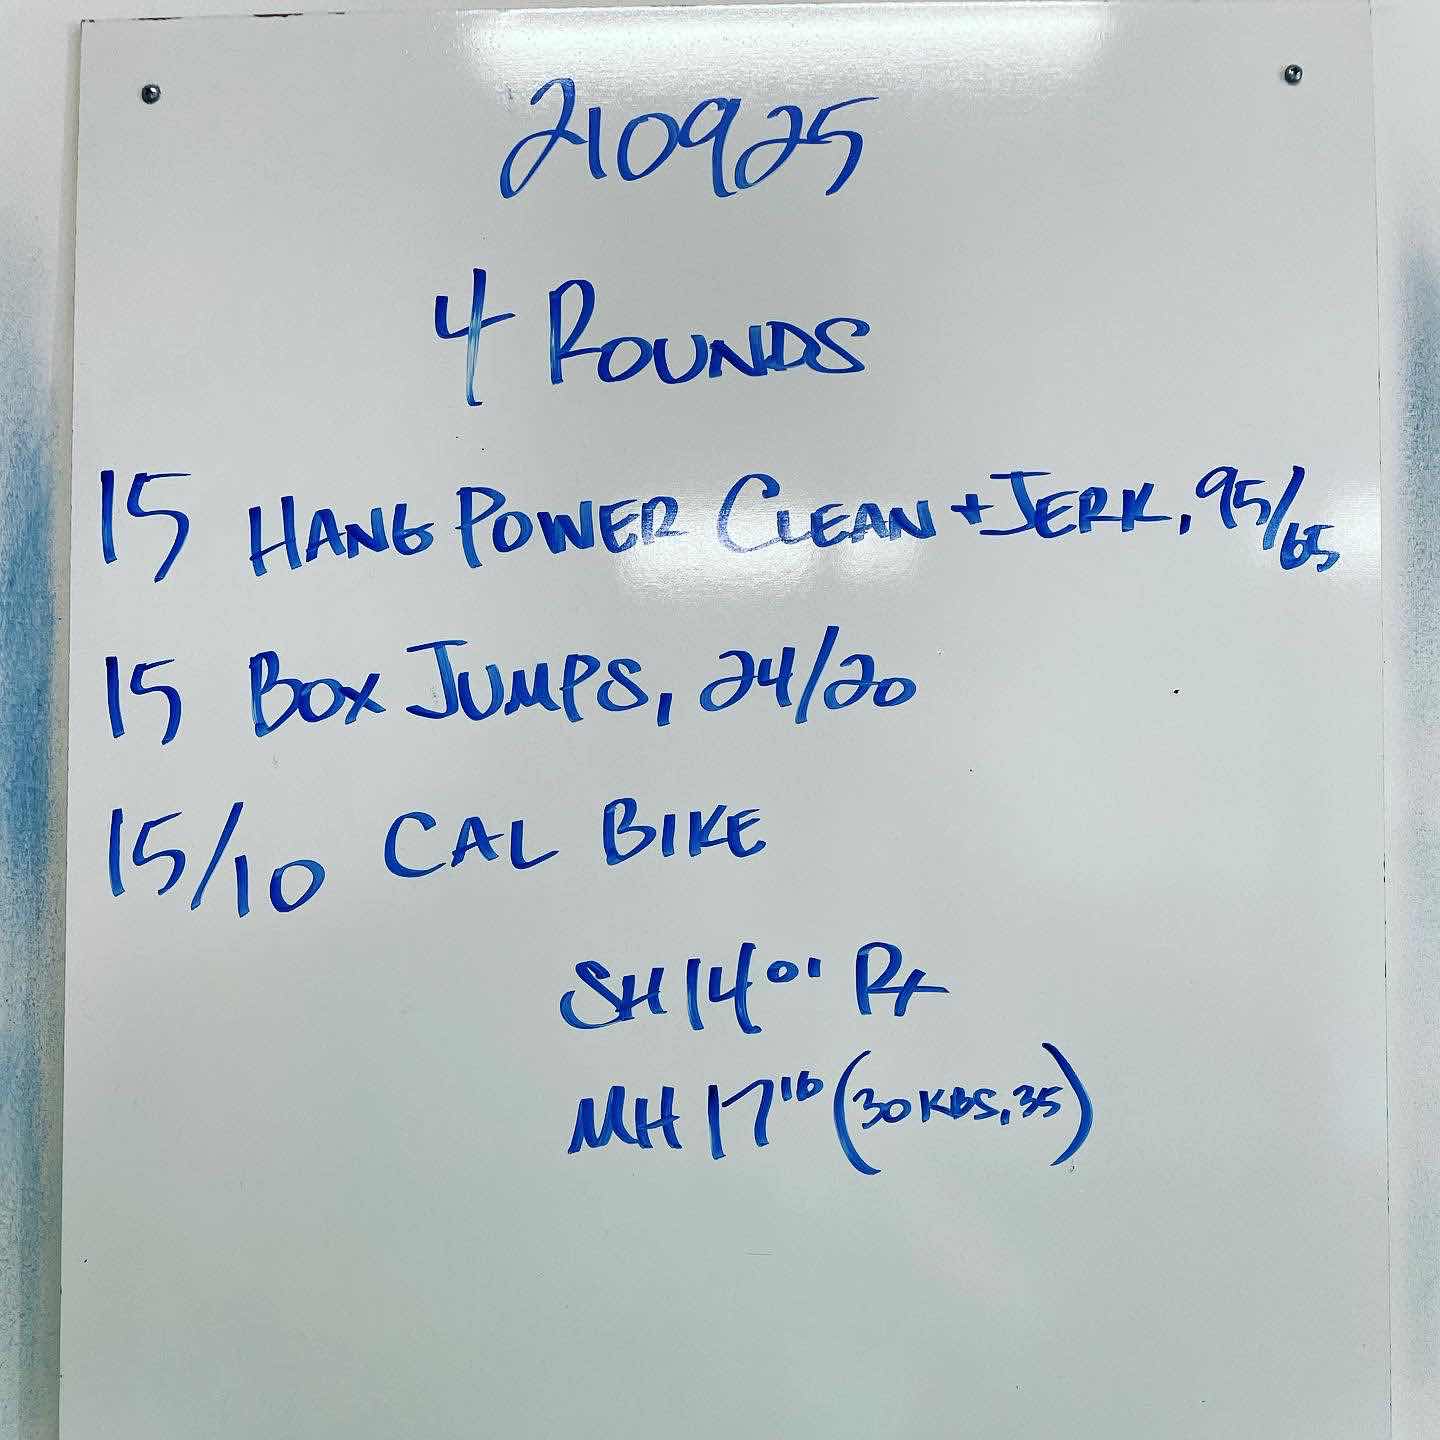 210925
4 ROUNDS
15 HANG POWER CLEAN + JERK, 95/65
15 BOX JUMPS, 24/20
15/10 CAL BIKE
SH 14 01 Rx
MH 17 16 (30 KBS, 35)